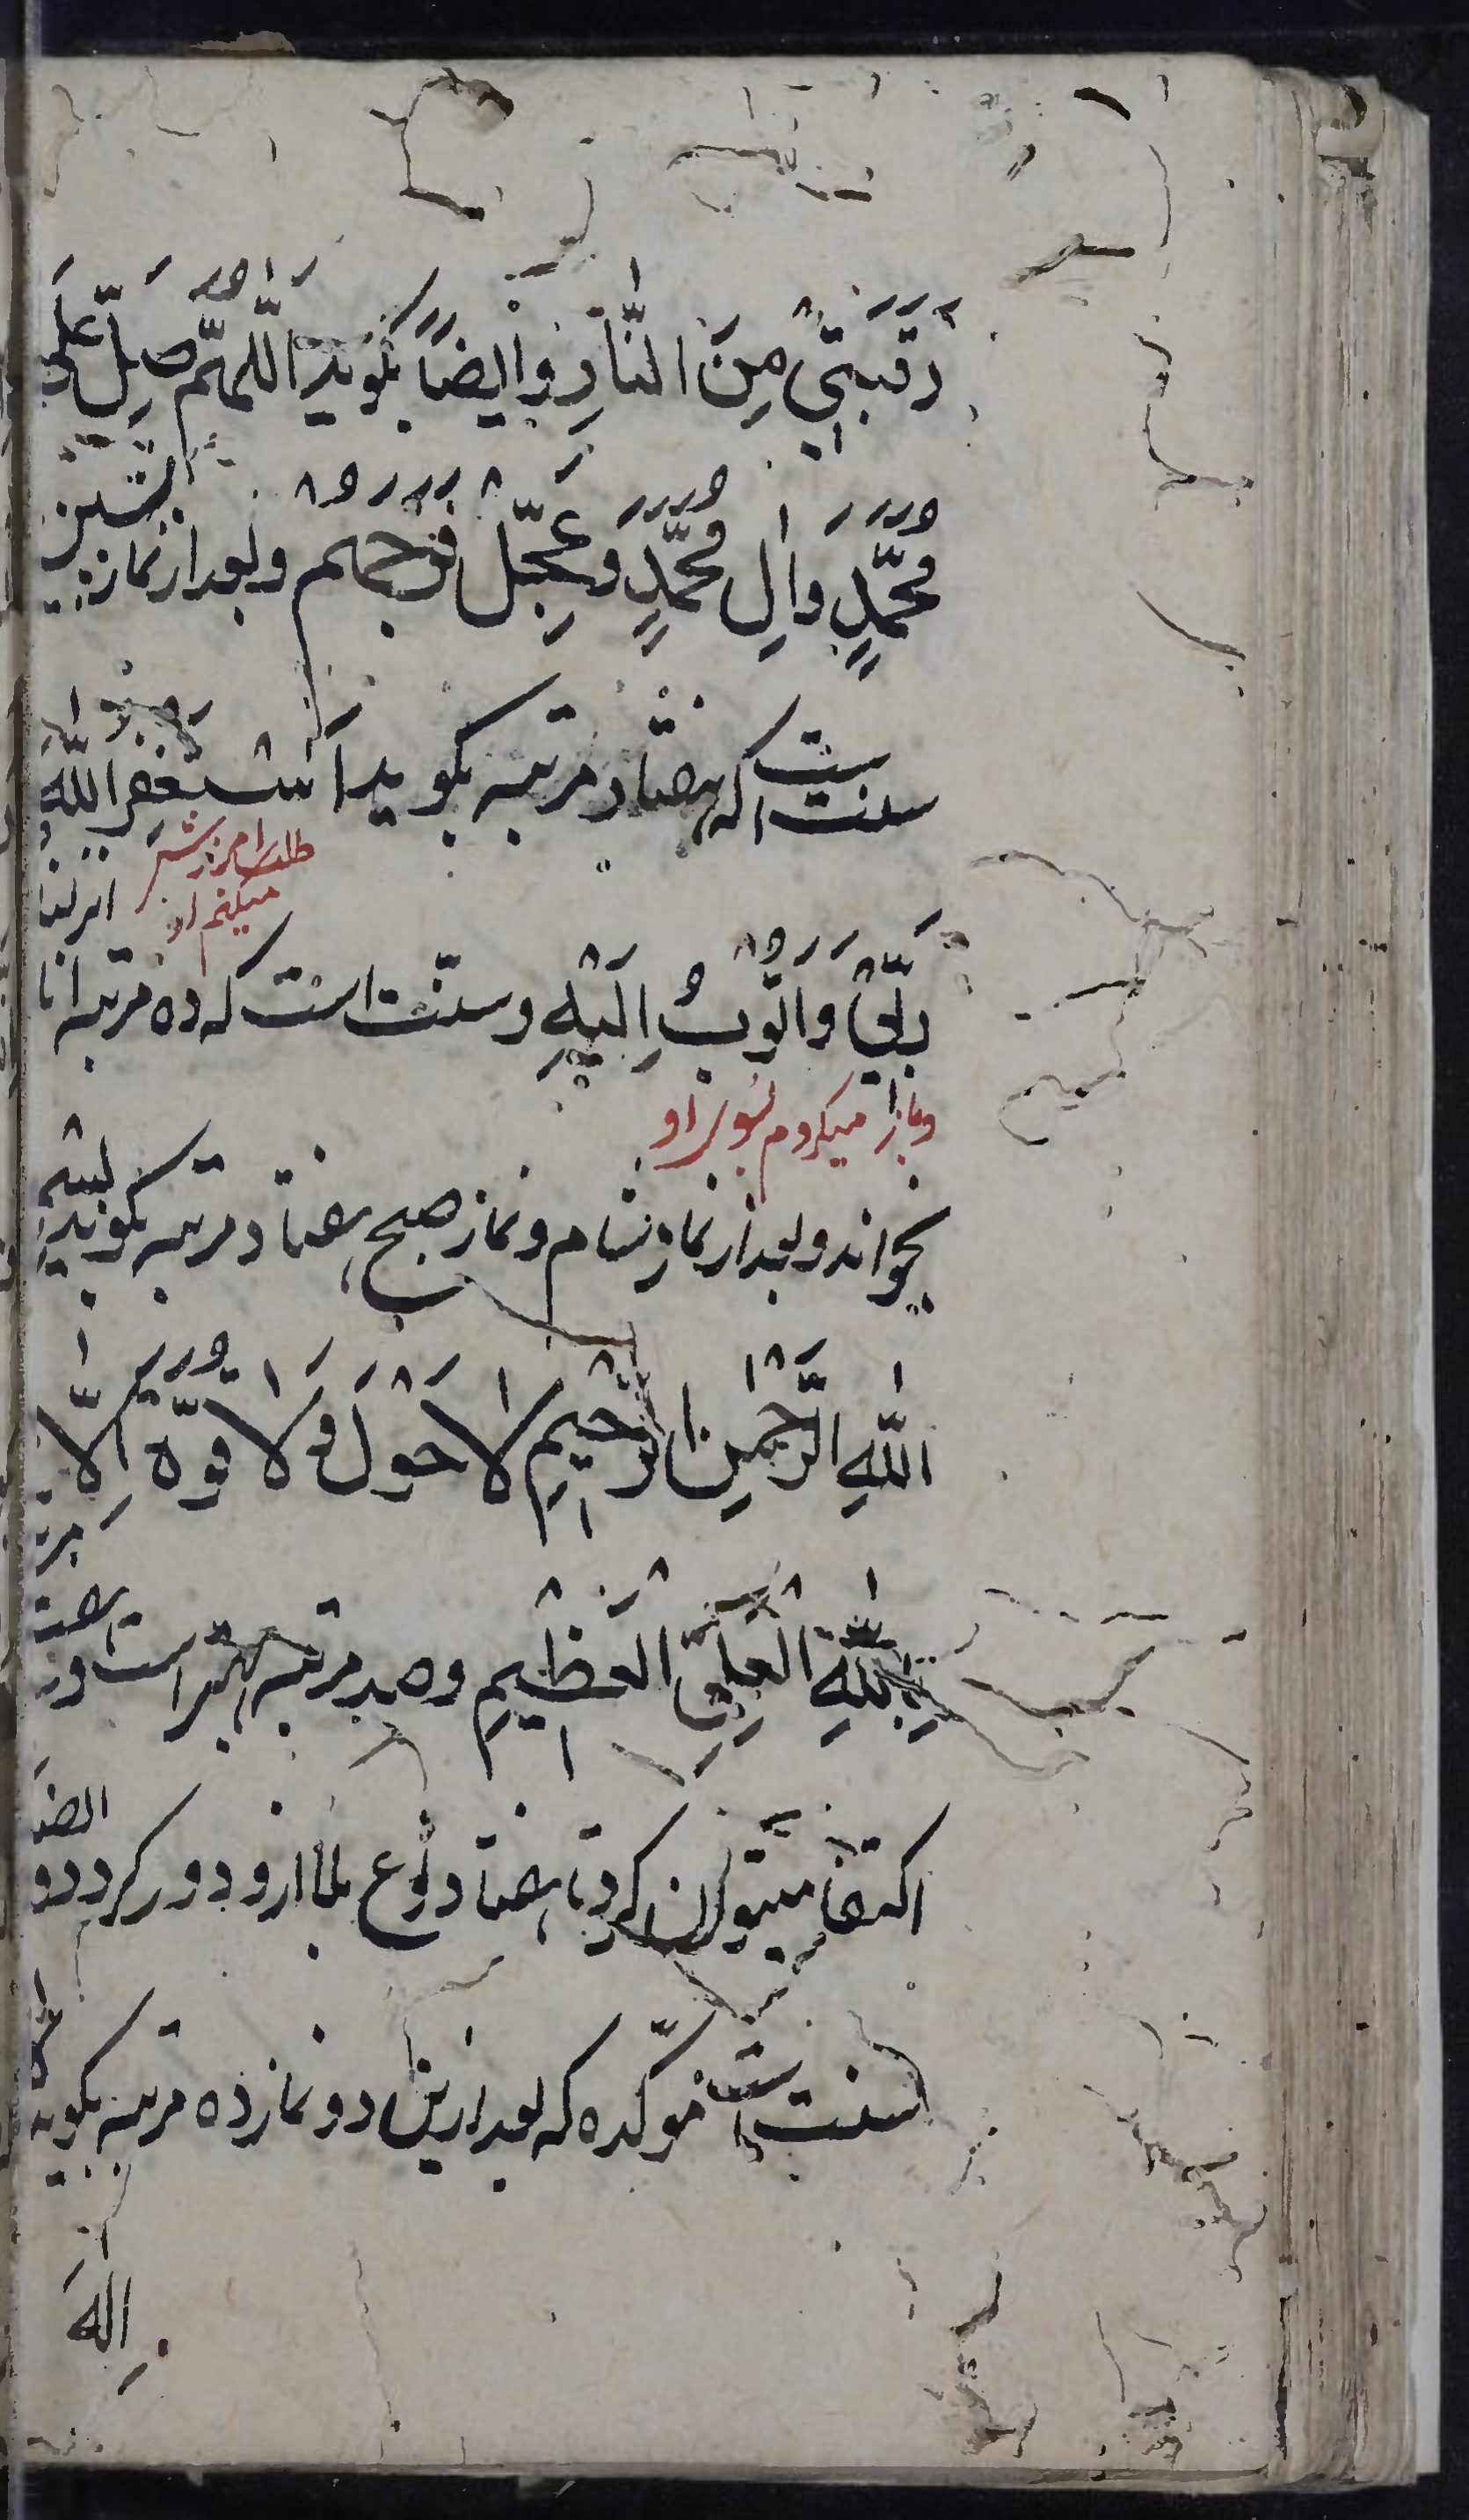 رَقَبَتِي مِنَ النَّارِ وایضاً بکوید اَللّهُمَّ صَلِّ عَلَی
مُحَمَّدٍ وَالِ مُحَمَّدٍ وَعَجِّلْ فَرَجَهُمْ وبعد از نماز پیشین
سنت است که هفتاد مرتبه بکوید اَسْتَغْفِرُ اللّهَ
طلب امرزش میکنم از
رَبِّي وَاَتُوبُ اِلَيْهِ وسنّت است که ده مرتبه انا انزلنا
وباز میکردم بسوی او
بخواند وبعد از نماز شام ونماز صبح هفتاد مرتبه بکوید بِسْمِ
اللّهِ الرَّحْمنِ الرَّحِيمِ لا حَوْلَ وَلا قُوَّةَ اِلّا
بِاللّهِ الْعَلِيِّ الْعَظِيمِ وصد مرتبه بهتر است وبر هفت مرتبه
اکتفا میتوان کرد تا هفتاد نوع بلا ازو دور کردد و ایضا
سنت است موکده که بعد ازین دو نماز ده مرتبه بکوید لا
اِلهَ